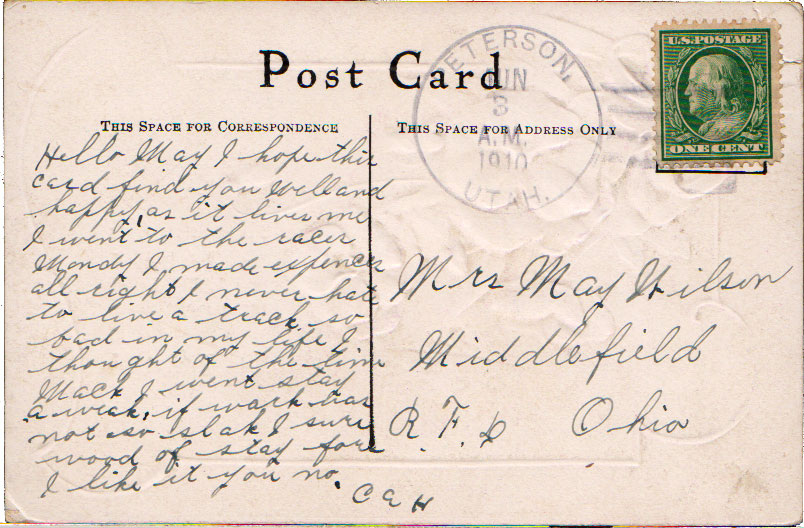 Post Card
THIS SPACE FOR CORRESPONDENCE
THIS SPACE FOR ADDRESS ONLY
PETERSON,
JUN
3
A.M.
1910
UTAH.
U.S. POSTAGE
ONE CENT
Hello May I hope this
card find you well and
happy, as it lives me
I went to the races
Monday I made expences
all right I never hate
to live a track so
bad in my life I
thought of the time
Mack I went stay
a weak, if work was
not so slak I sure
wood of stay for
I like it you no.
C E H
Mrs May Wilson
Middlefield
R. F. D Ohio